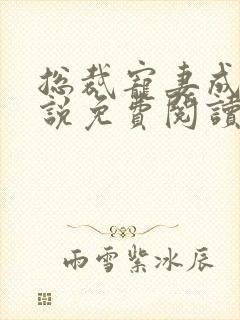 総裁寵妻成
說免費閱讀
雨雪紫冰辰